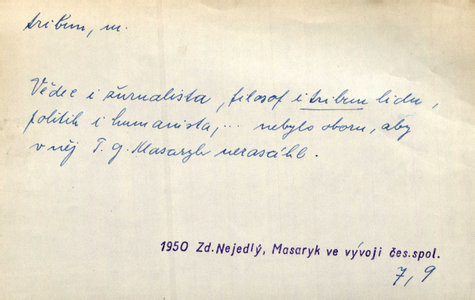 tribun, m.
Vědec i žurnalista, filosof i tribun lidu,
politik i humanista,... nebylo oboru, aby
v něj T. G. Masaryk nezasáhl.
1950 Zd. Nejedlý, Masaryk ve vývoji čes. spol.
7, 9